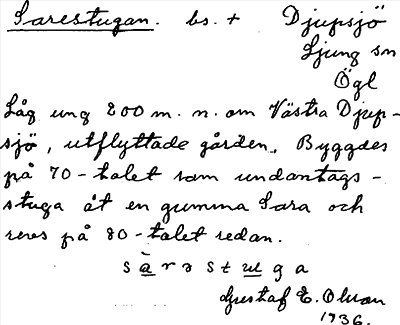 Sarestugan. bs. + Djupsjö
Ljung sn
Ögl
Låg ung 200 m. n. om Västra Djup-
sjö, utflyttade gården. Byggdes
på 70-talet som undantags-
stuga åt en gumma Sara och
reves på 80-talet redan.
sàrəstuga
Gustaf E. Olsson
1936.